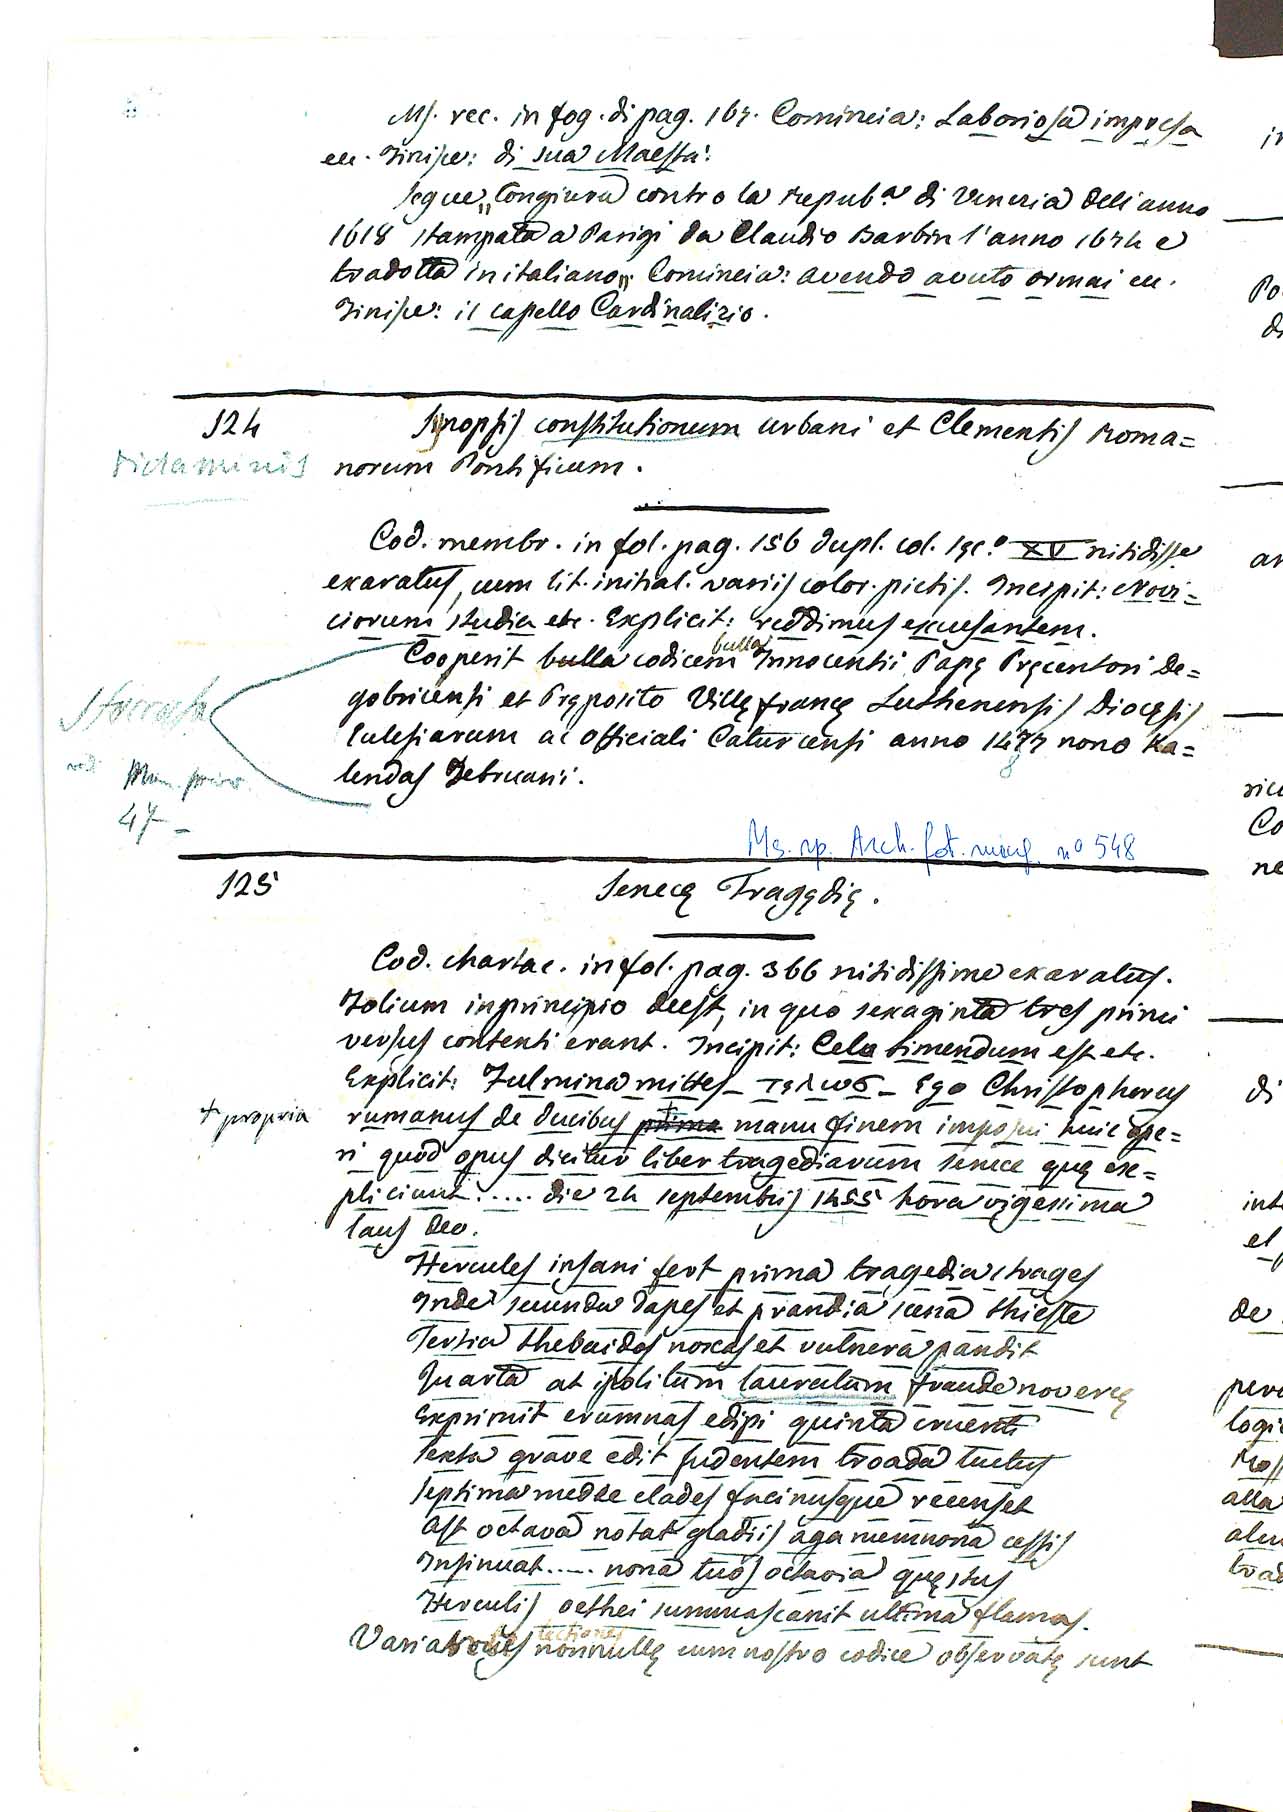 Ms. rec. in fog. di pag. 167. Comincia: Laboriosa impresa
ec. Finisce: di sua Maestà.
Segue „Congiura contro la Repub.a di Venezia dell'anno
1618 stampata a Parigi da Claudio Barbin l'anno 1674 e
tradotta in italiano„ Comincia: avendo avuto ormai ec.
Finisce: il capello Cardinalizio.
124
Synopsis constitutionum Urbani et Clementis Roma=
dictaminis
norum Pontificum.
Cod. membr. in fol. pag. 156 dupl. col. sęc.o XV nitidisse
exaratus, cum lit. initial. variis color. pictis. Incipit: Novi=
ciorum studia etc. Explicit: reddimus excusantem.
Cooperit bulla codicem bulla Innocentii Papę Pręcentori De=
gobricensi et Pręposito Villę francę Ruthenensis Diocęsis
Eclesiarum ac officiali Caturcensi anno 1477 nono Ka=
lendas Februarii.
47
Ms. rp. Arch. fot. marg. nº 548
125
Senecę Tragędię.
Cod. chartac. in fol. pag. 366 nitidissime exaratus.
Folium in principio deest, in quo sexaginta tres primi
versus contenti erant. Incipit: Cela timendum est etc.
Explicit: Fulmina mittes – τελωσ – Ego Christophorus
+ propria
rumanus de ducibus prima + manu finem imposui huic ope=
ri quod opus dicitur liber tragediarum senece quę ex=
pliciunt ..... die 24 septembris 1455 hora vigesima
laus deo.
Hercules insani fert prima tragedia strages
Inde secunda dapes et prandia scena thieste
Tertia thebaidos noxas et vulnera pandit
Quarta at ipolitum laceratum fraude novercę
Exprimit erumnas edipi quinta cruenti
Sexta grave edit sudentem troada luctus
Septima medee clades facinusque recenset
Ast octava notat gladiis agamemnona cessis
Insinuat ..... nona tuos octavia quęstus
Herculis oethei summas canit ultima flamas.
lectiones
Variationes nonnullę cum nostro codice observatę sunt